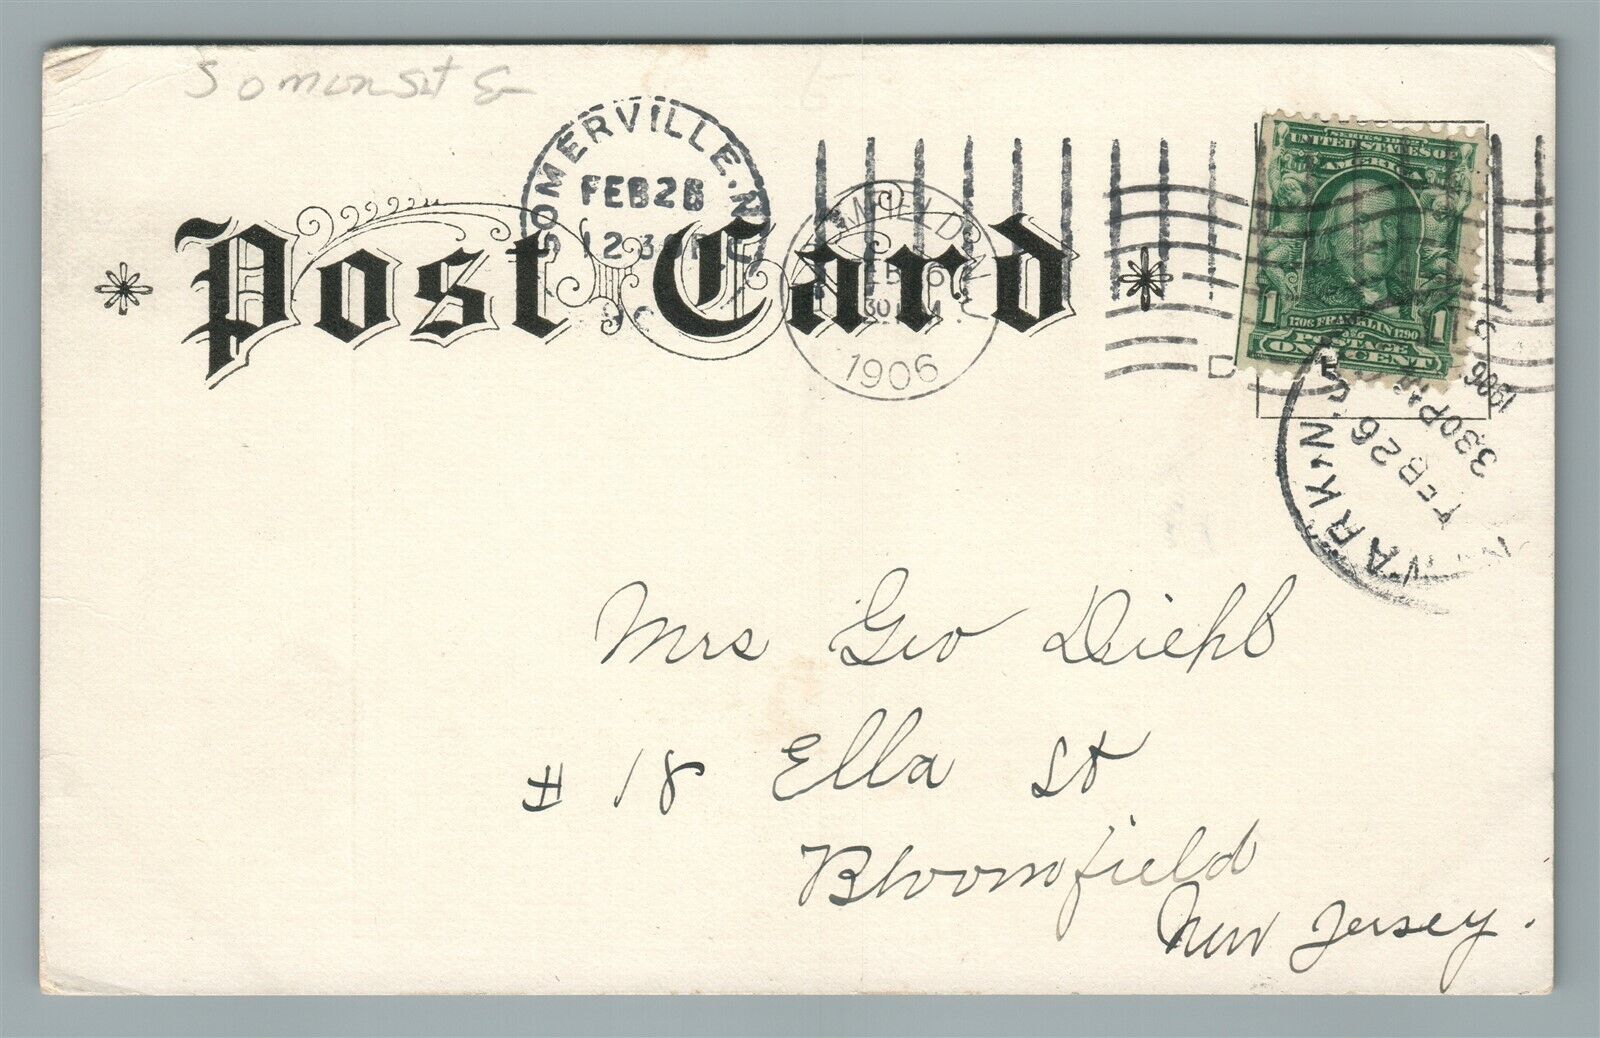 Somerset Co
SOMERVILLE, N.J.
FEB 26
12 30 P
Post Card
BLOOMFIELD, N.J.
FEB 26
30 PM
1906
D
SERIES 1902
UNITED STATES OF
AMERICA
1 1
1706 FRANKLIN 1790
POSTAGE
ONE CENT
NEWARK, N.J.
FEB 26
3 30 PM
1906
Mrs Geo Diehl
# 18 Ella St
Bloomfield
New Jersey.